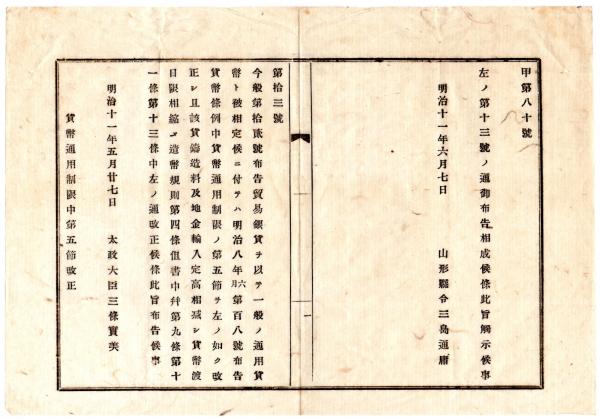 甲第八十號
左ノ第十三號ノ通御布告相成候條此旨觸示候事
明治十一年六月七日
山形縣令三島通庸
一
第拾三號
今般第拾貳號布告貿易銀貨ヲ以テ一般ノ通用貨
幣ト被相定候ニ付テハ明治八年六月第百八號布告
貨幣條例中貨幣通用制限ノ第五節ヲ左ノ如ク改
正シ且該貨鑄造料及地金輸入定高相減シ貨幣渡
日限相縮メ造幣規則第四條但書中幷第九條第十
一條第十三條中左ノ通改正候條此旨布告候事
明治十一年五月廿七日
太政大臣三條實美
貨幣通用制限中第五節改正